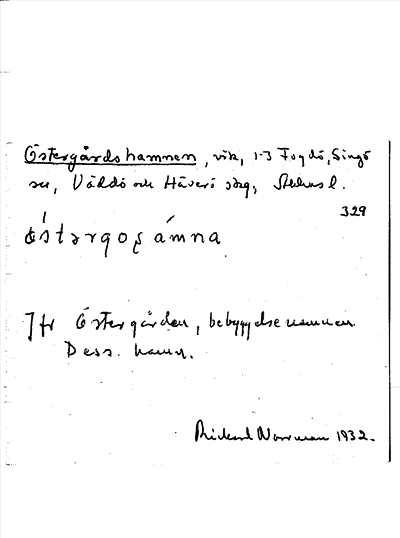 Östergårdshamnen, vik, 1-3 Fogdö, Singö
sn, Väddö och Häverö skg, Sthms l.
329
östərgoʂámna
Jfr Östergården, bebyggelsenamnen
Dess. hamn.
Rickard Norrman 1932.